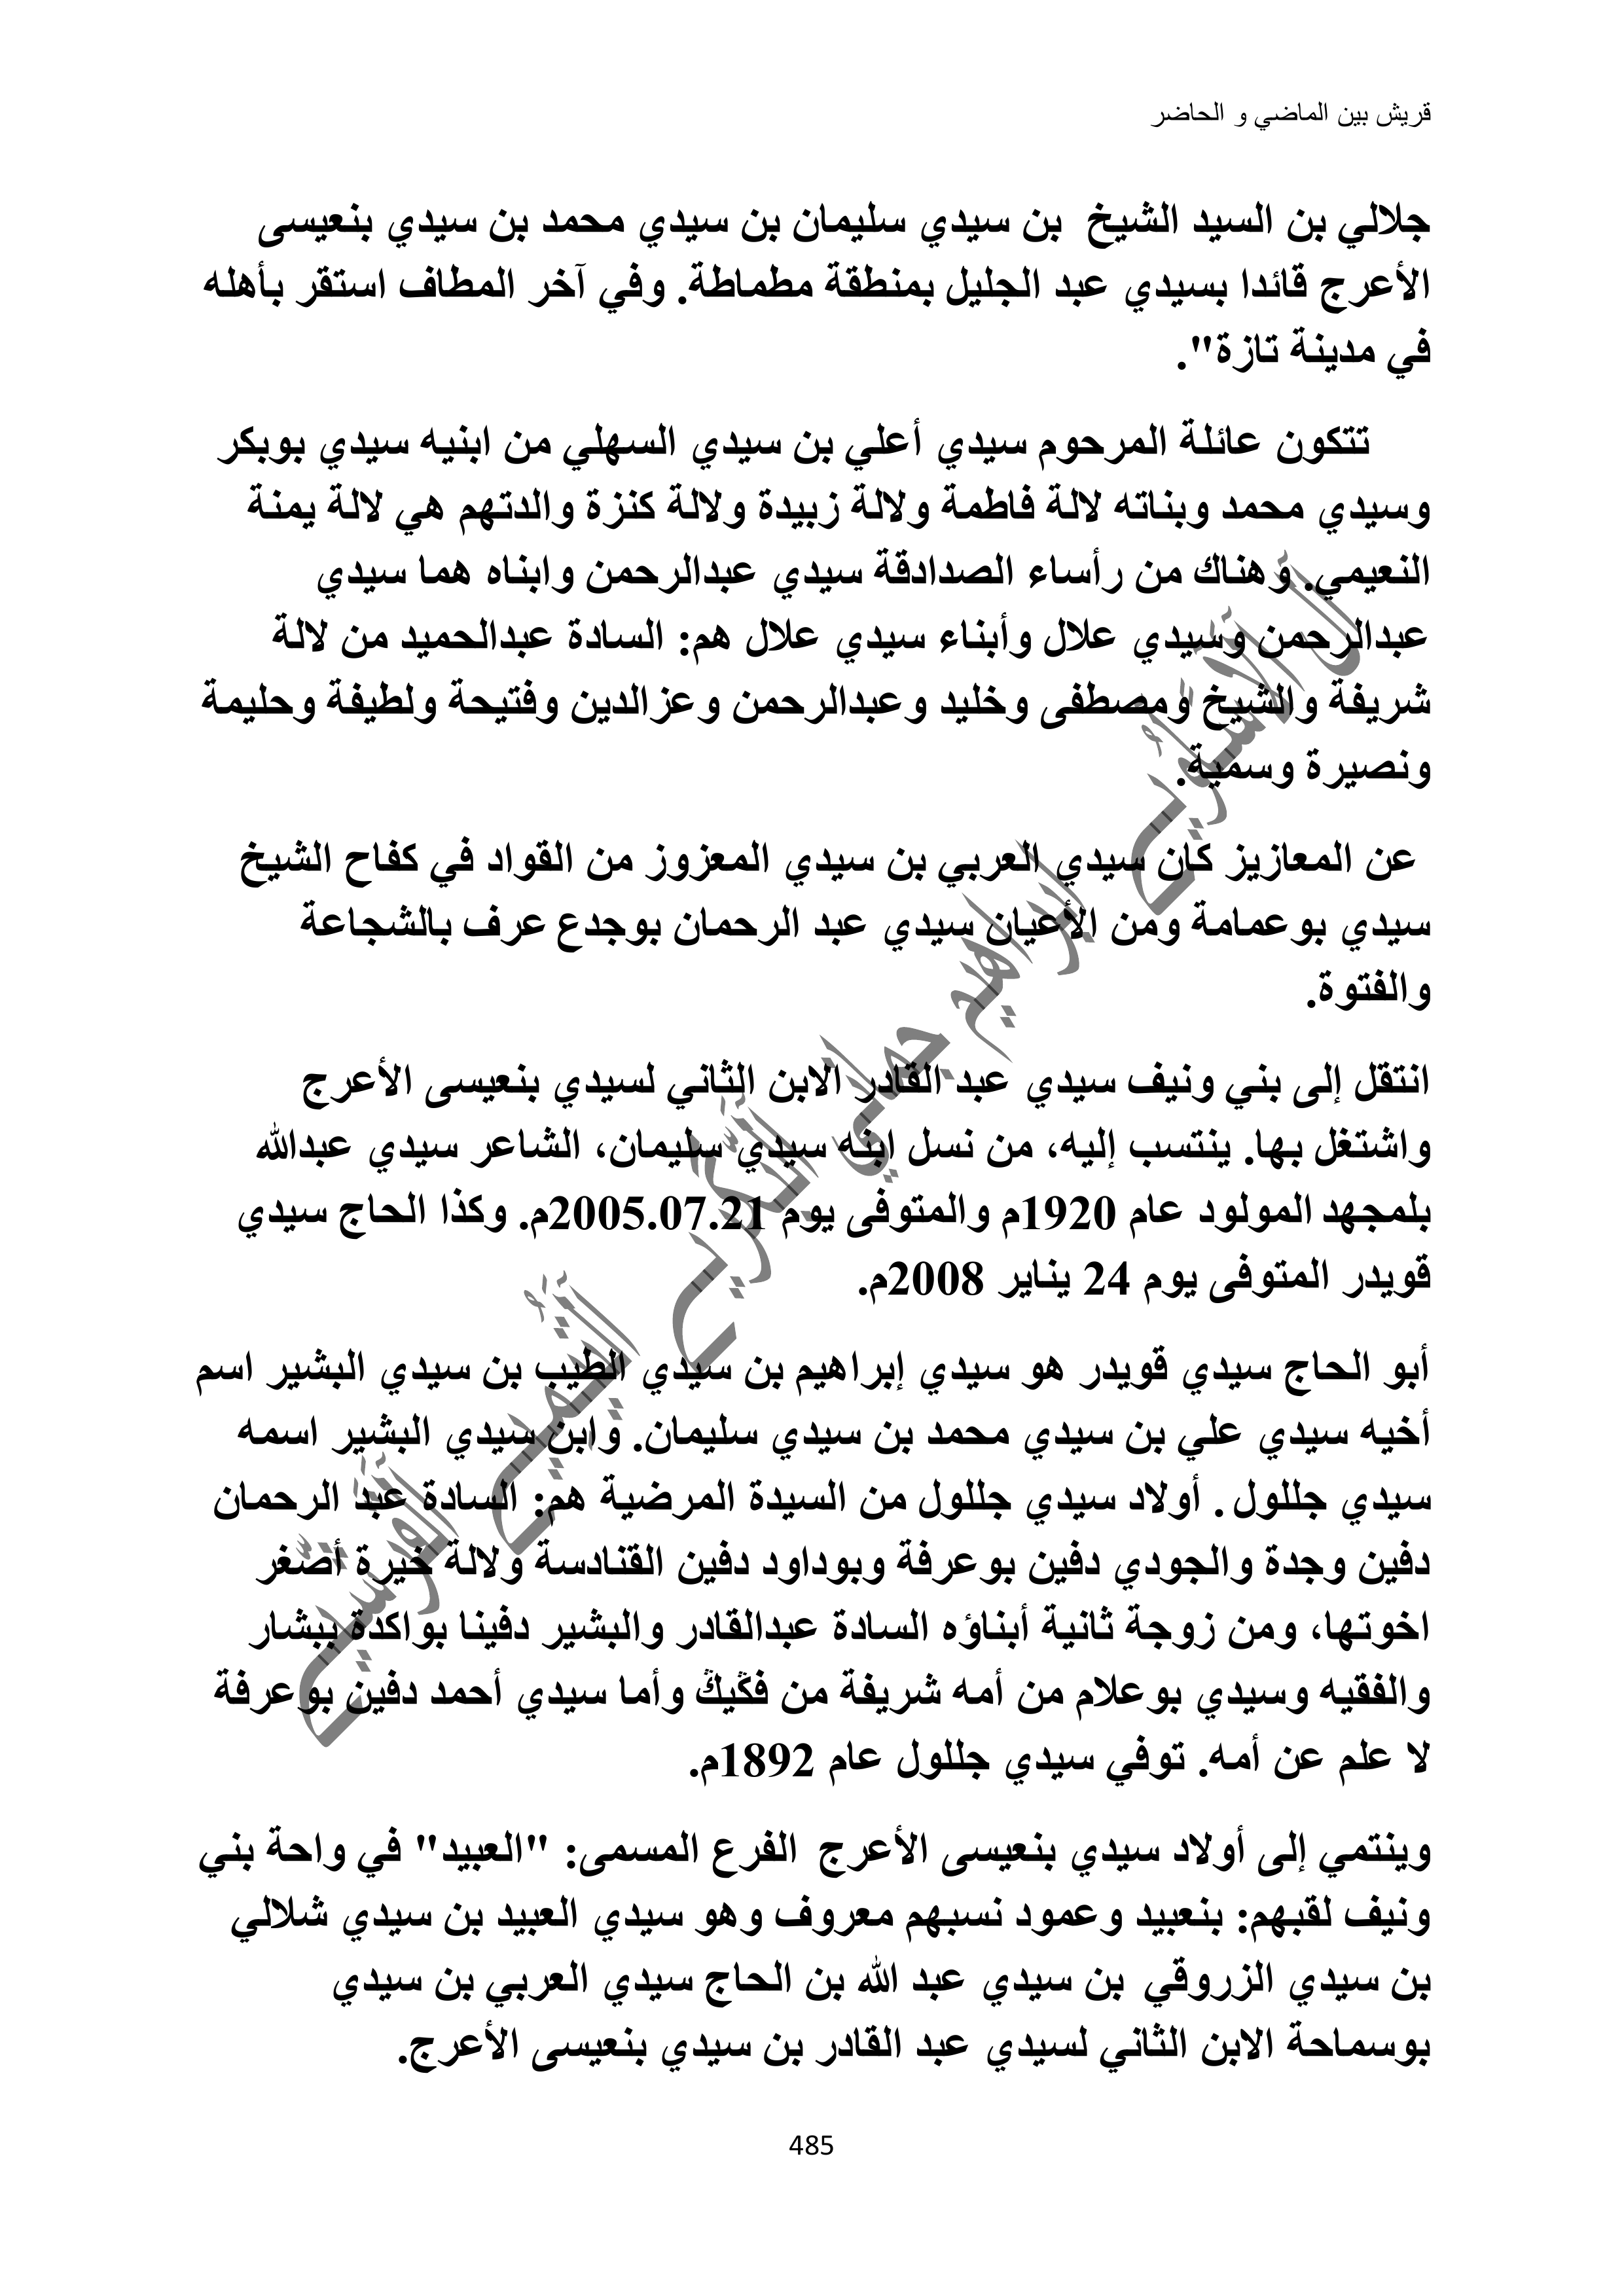 قريش بين الماضي و الحاضر
جلالي بن السيد الشيخ بن سيدي سليمان بن سيدي محمد بن سيدي بنعيسى
الأعرج قائدا بسيدي عبد الجليل بمنطقة مطماطة. وفي آخر المطاف استقر بأهله
في مدينة تازة".
تتكون عائلة المرحوم سيدي أعلي بن سيدي السهلي من ابنيه سيدي بوبكر
وسيدي محمد وبناته لالة فاطمة ولالة زبيدة ولالة كنزة والدتهم هي لالة يمنة
النعيمي. وهناك من رأساء الصدادقة سيدي عبدالرحمن وابناه هما سيدي
عبدالرحمن وسيدي علال وأبناء سيدي علال هم: السادة عبدالحميد من لالة
شريفة والشيخ ومصطفى وخليد وعبدالرحمن وعزالدين وفتيحة ولطيفة وحليمة
ونصيرة وسمية.
عن المعازيز كان سيدي العربي بن سيدي المعزوز من القواد في كفاح الشيخ
سيدي بوعمامة ومن الأعيان سيدي عبد الرحمان بوجدع عرف بالشجاعة
والفتوة.
انتقل إلى بني ونيف سيدي عبد القادر الابن الثاني لسيدي بنعيسى الأعرج
واشتغل بها. ينتسب إليه، من نسل ابنه سيدي سليمان، الشاعر سيدي عبدالله
بلمجهد المولود عام 1920م والمتوفى يوم 2005.07.21م. وكذا الحاج سيدي
قويدر المتوفى يوم 24 يناير 2008م.
أبو الحاج سيدي قويدر هو سيدي إبراهيم بن سيدي الطيب بن سيدي البشير اسم
أخيه سيدي علي بن سيدي محمد بن سيدي سليمان. وابن سيدي البشير اسمه
سيدي جللول . أولاد سيدي جللول من السيدة المرضية هم: السادة عبد الرحمان
دفين وجدة والجودي دفين بوعرفة وبوداود دفين القنادسة ولالة خيرة أصغر
اخوتها، ومن زوجة ثانية أبناؤه السادة عبدالقادر والبشير دفينا بواكدة ببشار
والفقيه وسيدي بوعلام من أمه شريفة من فڭيڭ وأما سيدي أحمد دفين بوعرفة
لا علم عن أمه. توفي سيدي جللول عام 1892م.
وينتمي إلى أولاد سيدي بنعيسى الأعرج الفرع المسمى: "العبيد" في واحة بني
ونيف لقبهم: بنعبيد وعمود نسبهم معروف وهو سيدي العبيد بن سيدي شلالي
بن سيدي الزروقي بن سيدي عبد الله بن الحاج سيدي العربي بن سيدي
بوسماحة الابن الثاني لسيدي عبد القادر بن سيدي بنعيسى الأعرج.
485